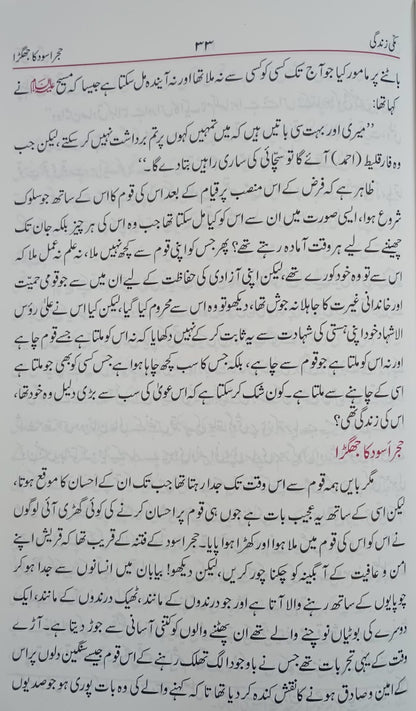 مکی زندگی ۳۳ حجر اسود کا جھگڑا
بانٹنے پر مامور کیا جو آج تک کسی کو کسی سے نہ ملا تھا اور نہ آیندہ مل سکتا ہے جیسا کہ مسیح علیہ السلام نے
کہا تھا:
”میری اور بہت سی باتیں ہیں کہ میں تمہیں کہوں پر تم برداشت نہیں کر سکتے لیکن جب
وہ فارقلیط (احمد) آئے گا تو سچائی کی ساری راہیں بتا دے گا۔“
ظاہر ہے کہ فرض کے اس منصب پر قیام کے بعد اس کی قوم کا اس کے ساتھ جو سلوک
شروع ہوا، ایسی صورت میں ان سے اس کو کیا مل سکتا تھا جب وہ اس کی ہر چیز بلکہ جان تک
چھیننے کے لیے ہر وقت آمادہ رہتے تھے؟ پھر جس کو اپنی قوم سے کچھ نہیں ملا، نہ علم نہ عمل ملا کہ
اس سے تو وہ خود کورے تھے، لیکن اپنی آزادی کی حفاظت کے لیے ان میں سے جو قومی حمیّت
اور خاندانی غیرت کا جاہلانہ جوش تھا، دیکھو تو وہ اس سے محروم کیا گیا، لیکن کیا اس نے علیٰ رؤس
الاشہاد خود اپنی ہستی کی شہادت سے یہ ثابت کر کے نہیں دکھایا کہ نہ اس کو ملتا ہے جسے قوم چاہے
اور نہ اس کو ملتا ہے جو قوم سے چاہے، بلکہ جس کا سب کچھ چاہا ہوا ہے جس کسی کو بھی جو ملتا ہے
اسی کے چاہنے سے ملتا ہے۔ کون شک کر سکتا ہے کہ اس دعویٰ کی سب سے بڑی دلیل وہ خود تھا،
اس کی زندگی تھی؟
حجر اسود کا جھگڑا
مگر بایں ہمہ قوم سے اس وقت تک جدا رہتا تھا جب تک ان کے احسان کا موقع ہوتا،
لیکن اسی کے ساتھ یہ عجیب بات ہے جوں ہی قوم پر احسان کرنے کی کوئی گھڑی آئی لوگوں
نے اس کو اس کی قوم میں ملا ہوا اور کھڑا ہوا پایا۔ حجر اسود کے فتنہ کے قریب تھا کہ قریش اپنے
امن و عافیت کے آبگینہ کو چکنا چور کریں، لیکن دیکھو! بیابان میں انسانوں سے جدا ہو کر
چوپایوں کے ساتھ رہنے والا آتا ہے اور جو درندوں کے مانند، ٹھیک درندوں کے مانند، ایک
دوسرے کی بوٹیاں نوچنے والے تھے ان پھٹنے والوں کو کتنی آسانی سے جوڑ دیتا ہے۔ آڑے
وقت کے یہی تجربات تھے جس نے باوجود الگ تھلگ رہنے کے اس قوم جیسے سنگین دلوں پر اس
کے امین و صادق ہونے کا نقش کندہ کر دیا تھا تا کہ کہنے والے کی وہ بات پوری ہو جو صدیوں